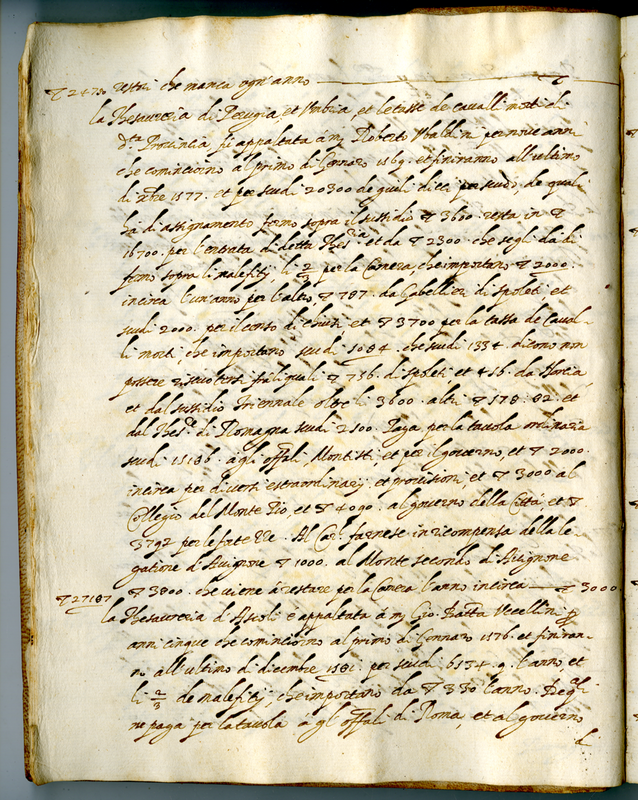 ▽ 2470 restri che manca ogn'anno ▽
la Thesaureria di Perugia, et Umbria, et le tasse de cavalli morti di
d.ta Provincia fù appaltata à m Roberto Ubaldini per nove anni
che cominciorno al primo di Gennaro 1569. et finiranno all'ultimo
di xbre 1577. et per scudi 20300 de quali dieci per scudo, de quali
hà d'assignamento fermo sopra il sussidio ▽ 3600. resta in ▽
16700. per l'entrata di detta Thes.ria et da ▽ 2300. che segli dà di
fermo sopra li malefitij, li 2/3 per la Camera, che importano ▽ 2000.
incirca l'un'anno per l'altro, ▽ 787. da Gabellieri di Spoleti et
scudi 2000. per il conto di chiusi et ▽ 3700 per la tassa de Caval-
li morti, che importano scudi 5084. che scudi 1334. dicono non
possere riscuotersi fra li quali ▽ 736. di spoleti et 416. da Norcia
et dal sussidio Triennale oltre li 3600. altri ▽ 178: 82. et
dal Thes.re di Romagna scudi 2500. Paga per la tavola ordinaria
scudi 15186. à gli offitiali, Montisti, et per il governo, et ▽ 2000.
incirca per diversi estraordinarij et provisioni, et ▽ 3000 al
Collegio del Monte Pio, et ▽ 4090. al governo della Città, et ▽
3792 per le fatt.re. Al Car.l farnese in ricompensa della le-
gatione d'Avignone ▽ 1000. al Monte secondo di Avignone
▽ 3800. che viene à restare per la Camera l'anno incirca ▽ 3000
▽ 27187 la Thesaureria d'Ascoli è appaltata à m Gio. Batta Ucellini p
anni cinque che cominciorno al primo di Gennaro 1576. et finiran-
no all'ultimo di dicembre 1581. per scudi 6134. 9. l'anno et
li 2/3 de malefitij, che importano da ▽ 330 l'anno. De q.li
ne paga per la tavola à gl'offitiali di Roma, et al governo